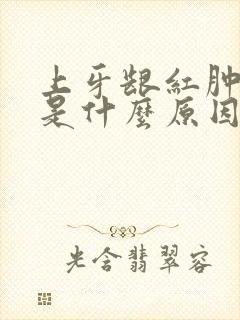 上牙龈紅肿
是什麼原因
光含翡翠容